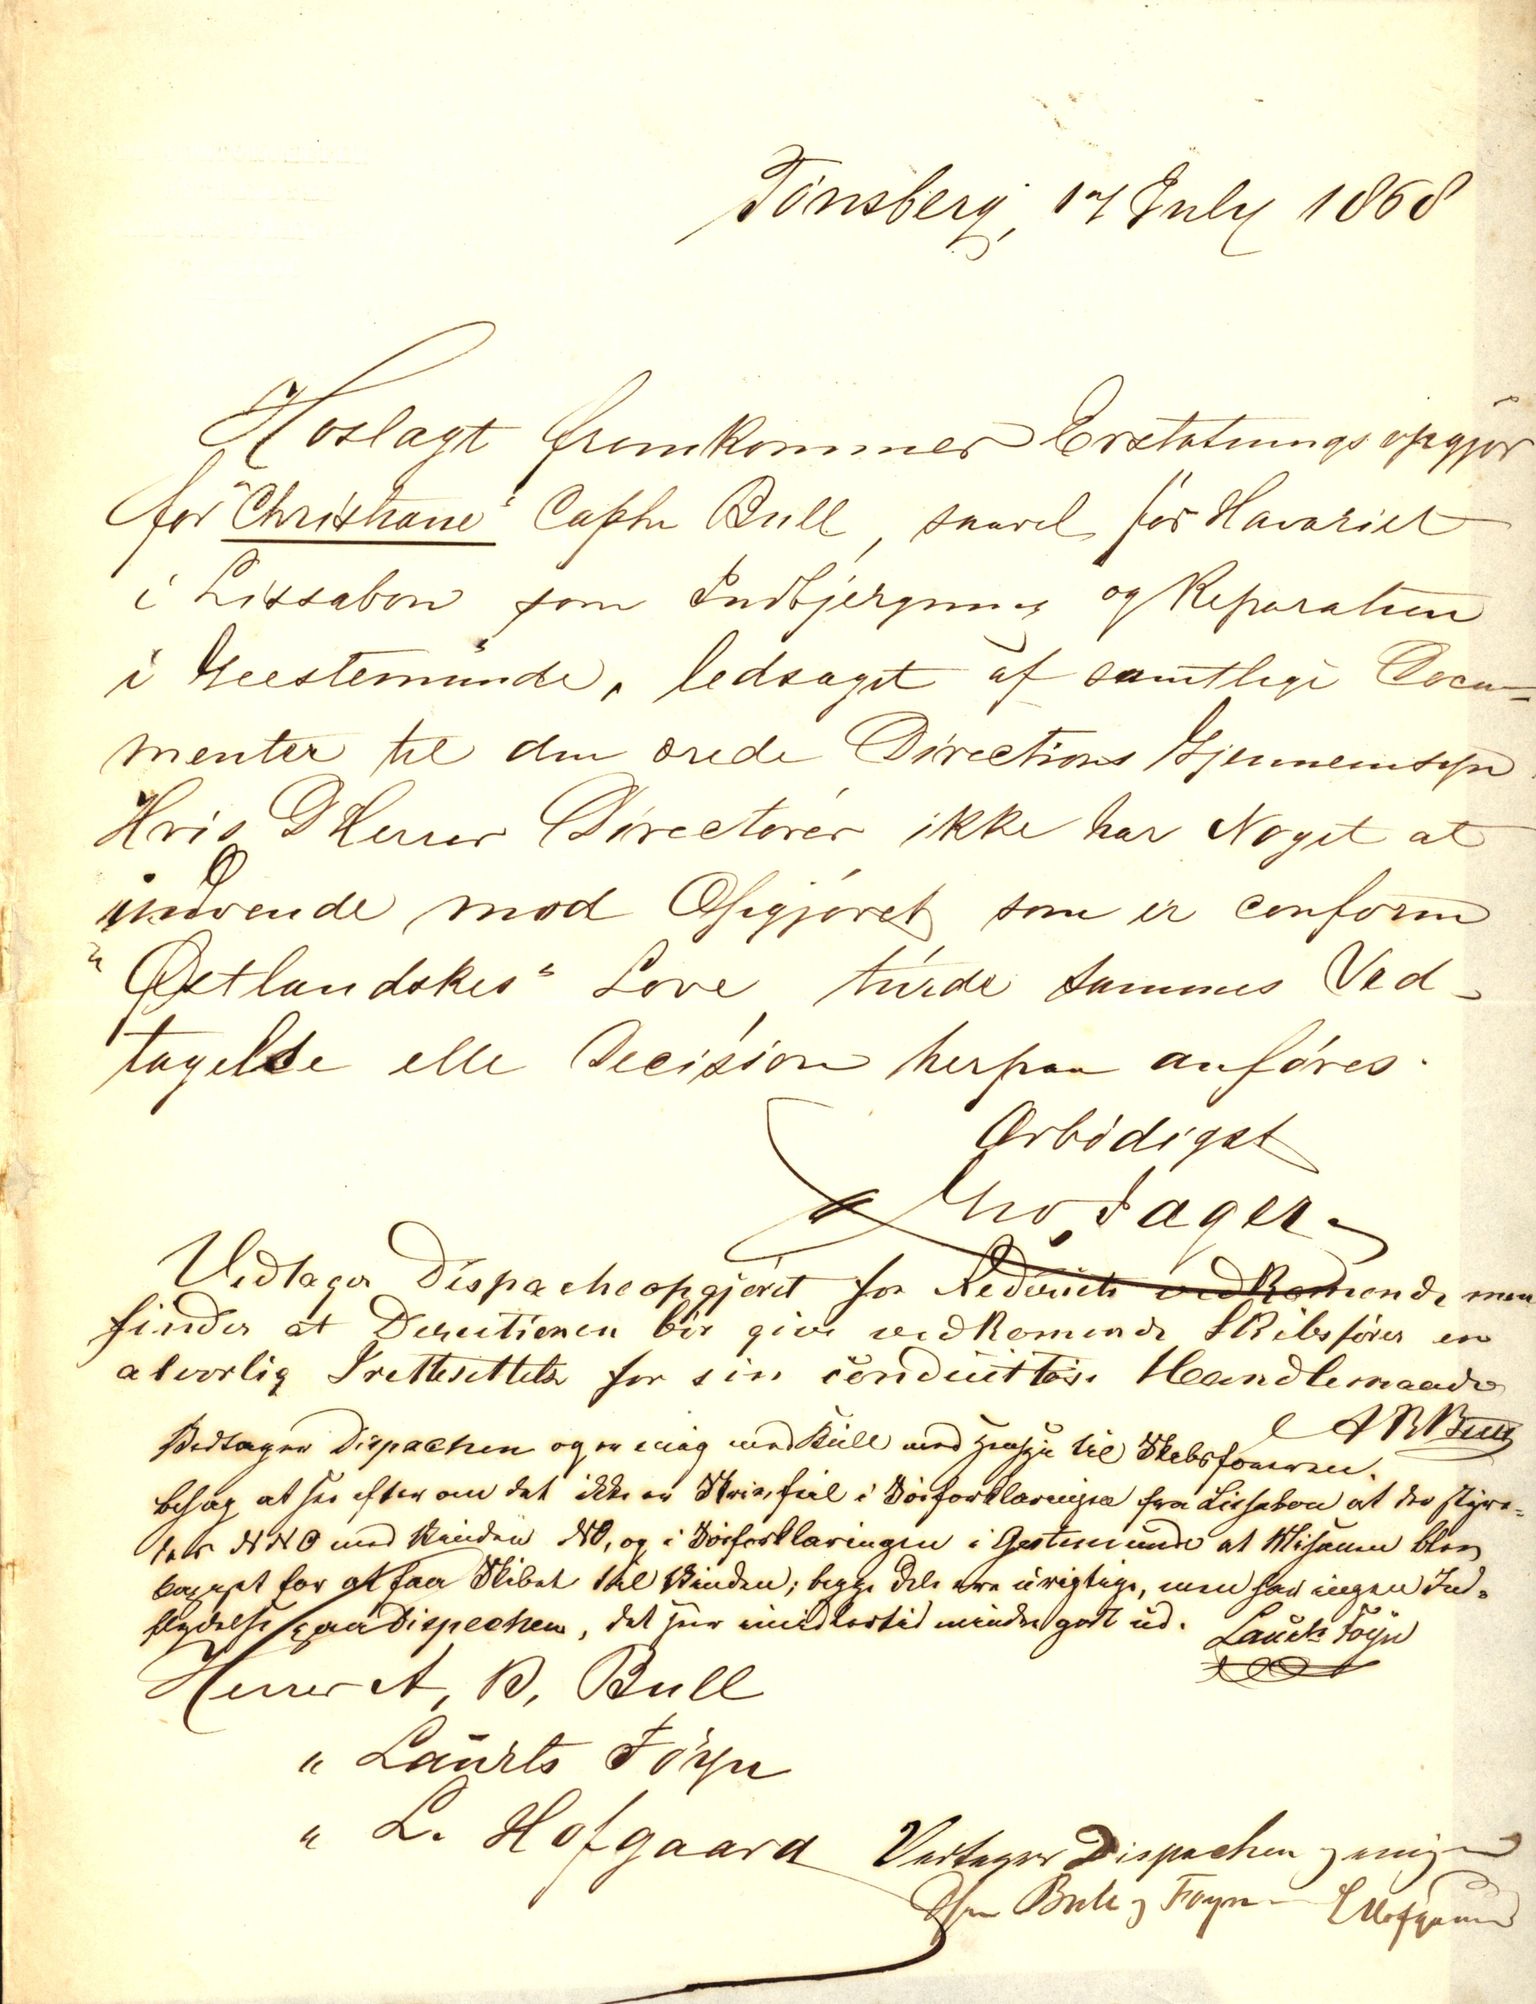 Tønsberg, 17 July 1868
Hoslagt fremkommer Erstatningsopgjør
for "Christiane" Captn Bull, saavel for Havariet
i Lissabon som Indbjergning og Reparation
i Geestemünde, ledsaget af samtlige Docu-
menter til den ærede Directions Gjennemsyn
Hvis D'Herrer Directører ikke har Noget at
indvende mod Opgjøret som er conform
"Østlandskes" Love, turde sammes Ved-
tagelse elle Decision herpaa anføres.
Ærbødigst
Jager
Vedtager Dispacheopgjøret for Rederiets vedkomende men
finder at Directionen bør give vedkomende Skibsfører en
alvorlig Irettesettelse for sin conduitløse Handlemaade
A B Bull
Vedtager Dispachen og er enig med Bull med Hensyn til Skibsføreren.
behag at see efter om det ikke er Skrivfeil i Søforklaringen fra Lissabon at der styre-
des NNO med Vinden NO, og i Søforklaringen i Gestemunde at Misanen blev
kappet for at faa Skibet til Vinden; begge Dele ere urigtige, men har ingen Ind-
flydelse paa Dispachen, det seer imidlertid mindre godt ud.
Laurts Føyn
Herrer A, B, Bull
" Laurts Føyn
" L. Hofgaard
Vedtager Dispachen og enig
Bull og Foyn L Hofgaard